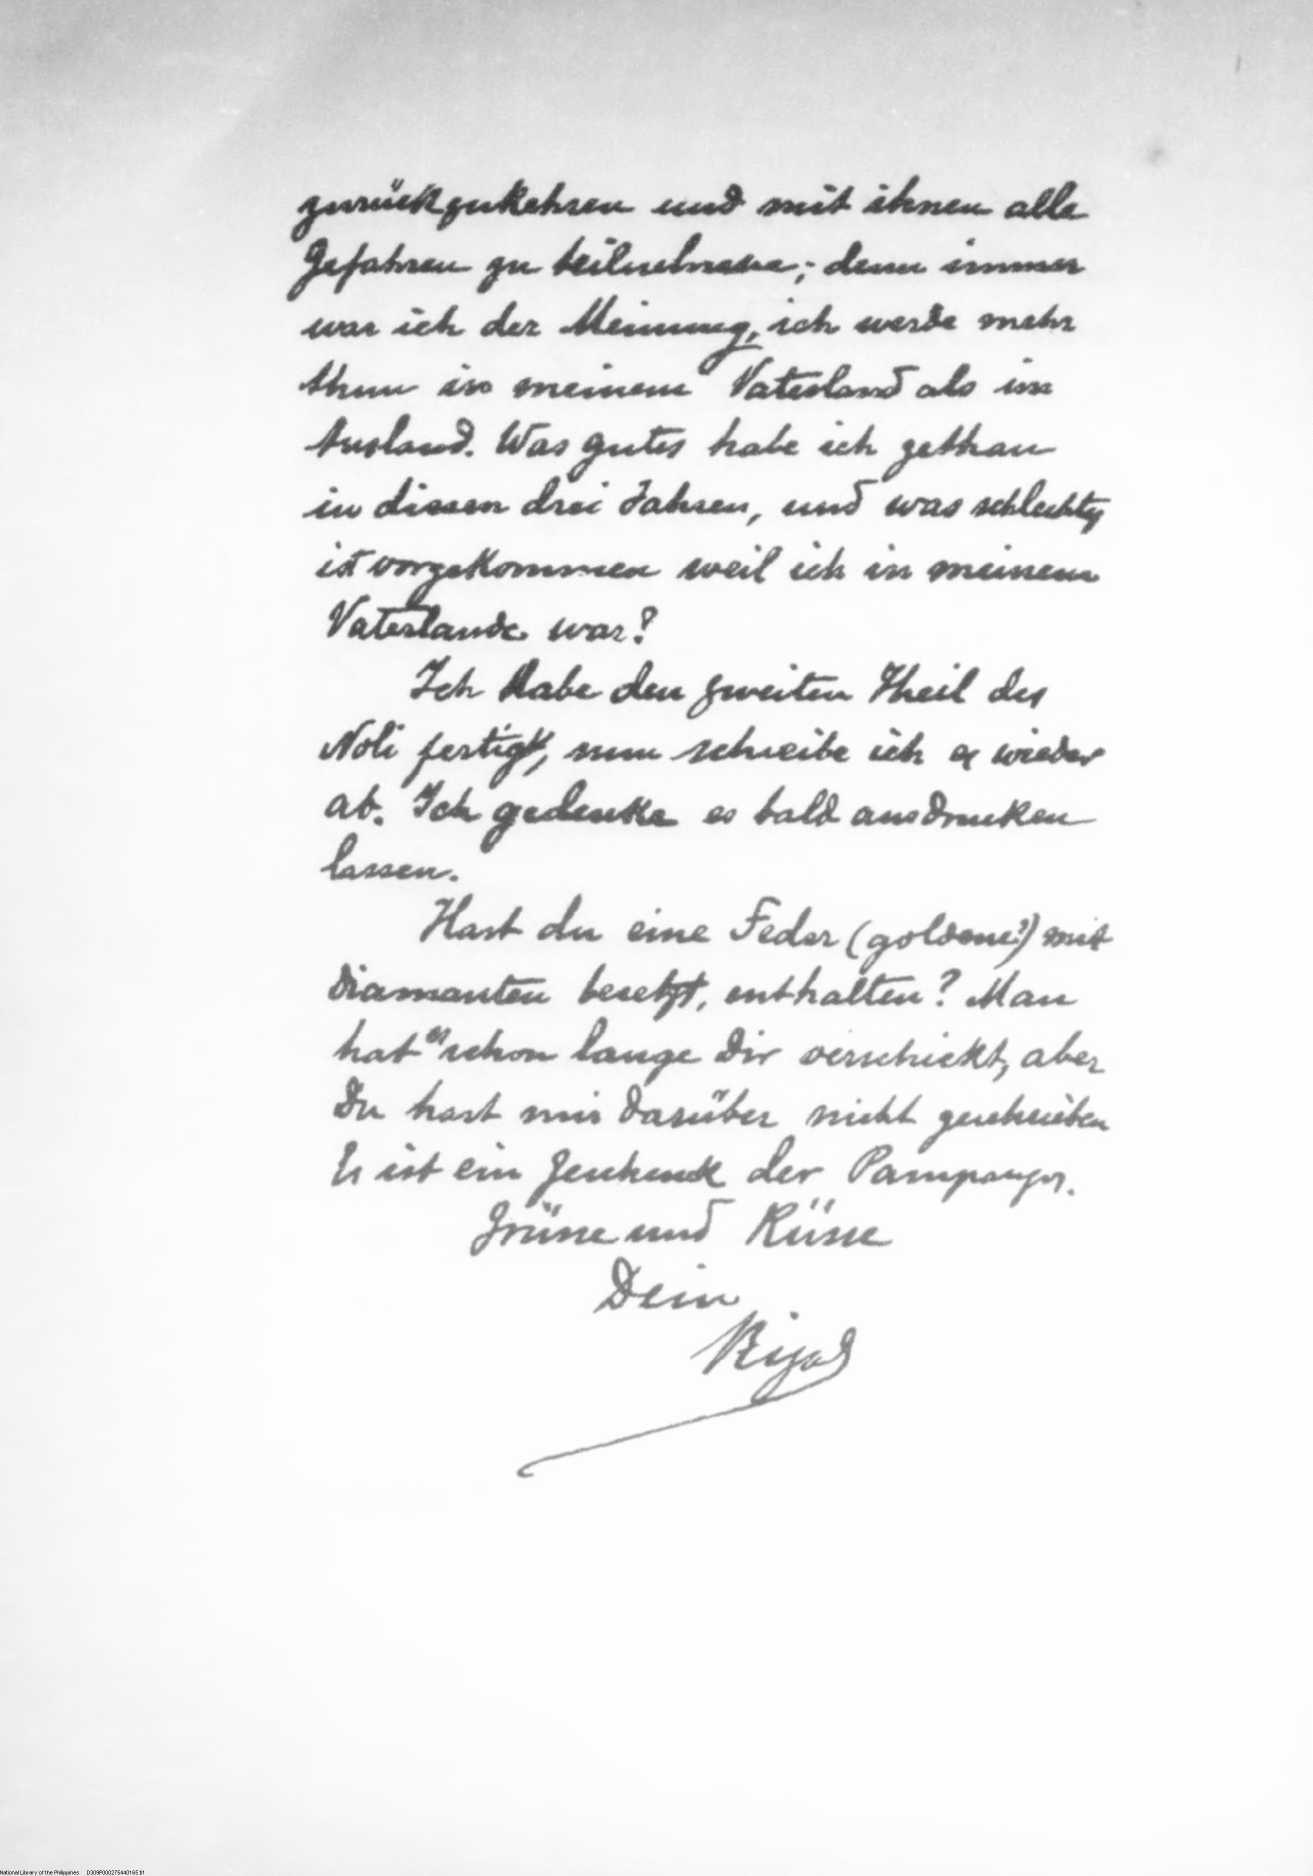 zurückzukehren und mit ihnen alle
Gefahren zu teilnehmen; denn immer
war ich der Meinung, ich werde mehr
thun in meinem Vaterland als im
Ausland. Was gutes habe ich gethan
in diesen drei Jahren, und was schlechtes
ist vorgekommen weil ich in meinem
Vaterlande war?
Ich habe den zweiten Theil des
Noli fertig, nun schreibe ich es wieder
ab. Ich gedenke es bald ausdrucken
lassen.
Hast du eine Feder (goldene?) mit
Diamanten besetzt, enthalten? Man
hat es schon lange dir verschickt, aber
Du hast mir darüber nicht geschrieben
Es ist ein Geschenk der Pampangos.
Grüsse und Küsse
Dein
Rizal
National Library of the Philippines